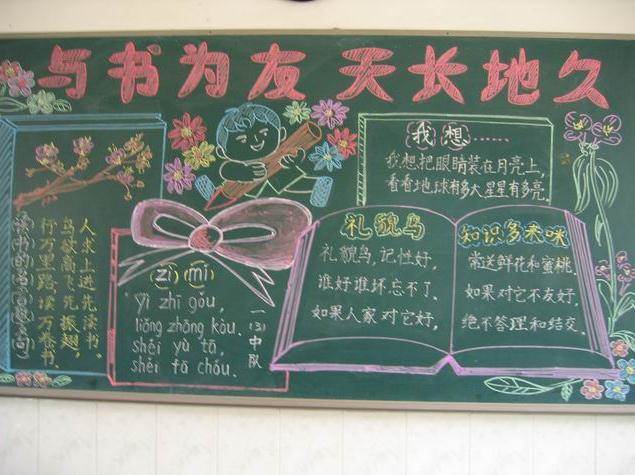 与书为友 天长地久
读书的名言警句
人求上进先读书。
鸟欲高飞先振翅,
行万里路,读万卷书.
zì mí
Yì zhī gǒu,
liǎng zhāng kǒu,
shéi yù tā,
shéi fā chóu.
一(3)中队
我想……
我想把眼睛装在月亮上,
看看地球有多大星星有多亮.
礼貌鸟
礼貌鸟,记性好,
谁好谁坏忘不了、
如果人家对它好,
知识多来咪
常送鲜花和蜜桃.
如果对它不友好,
绝不答理和结交.